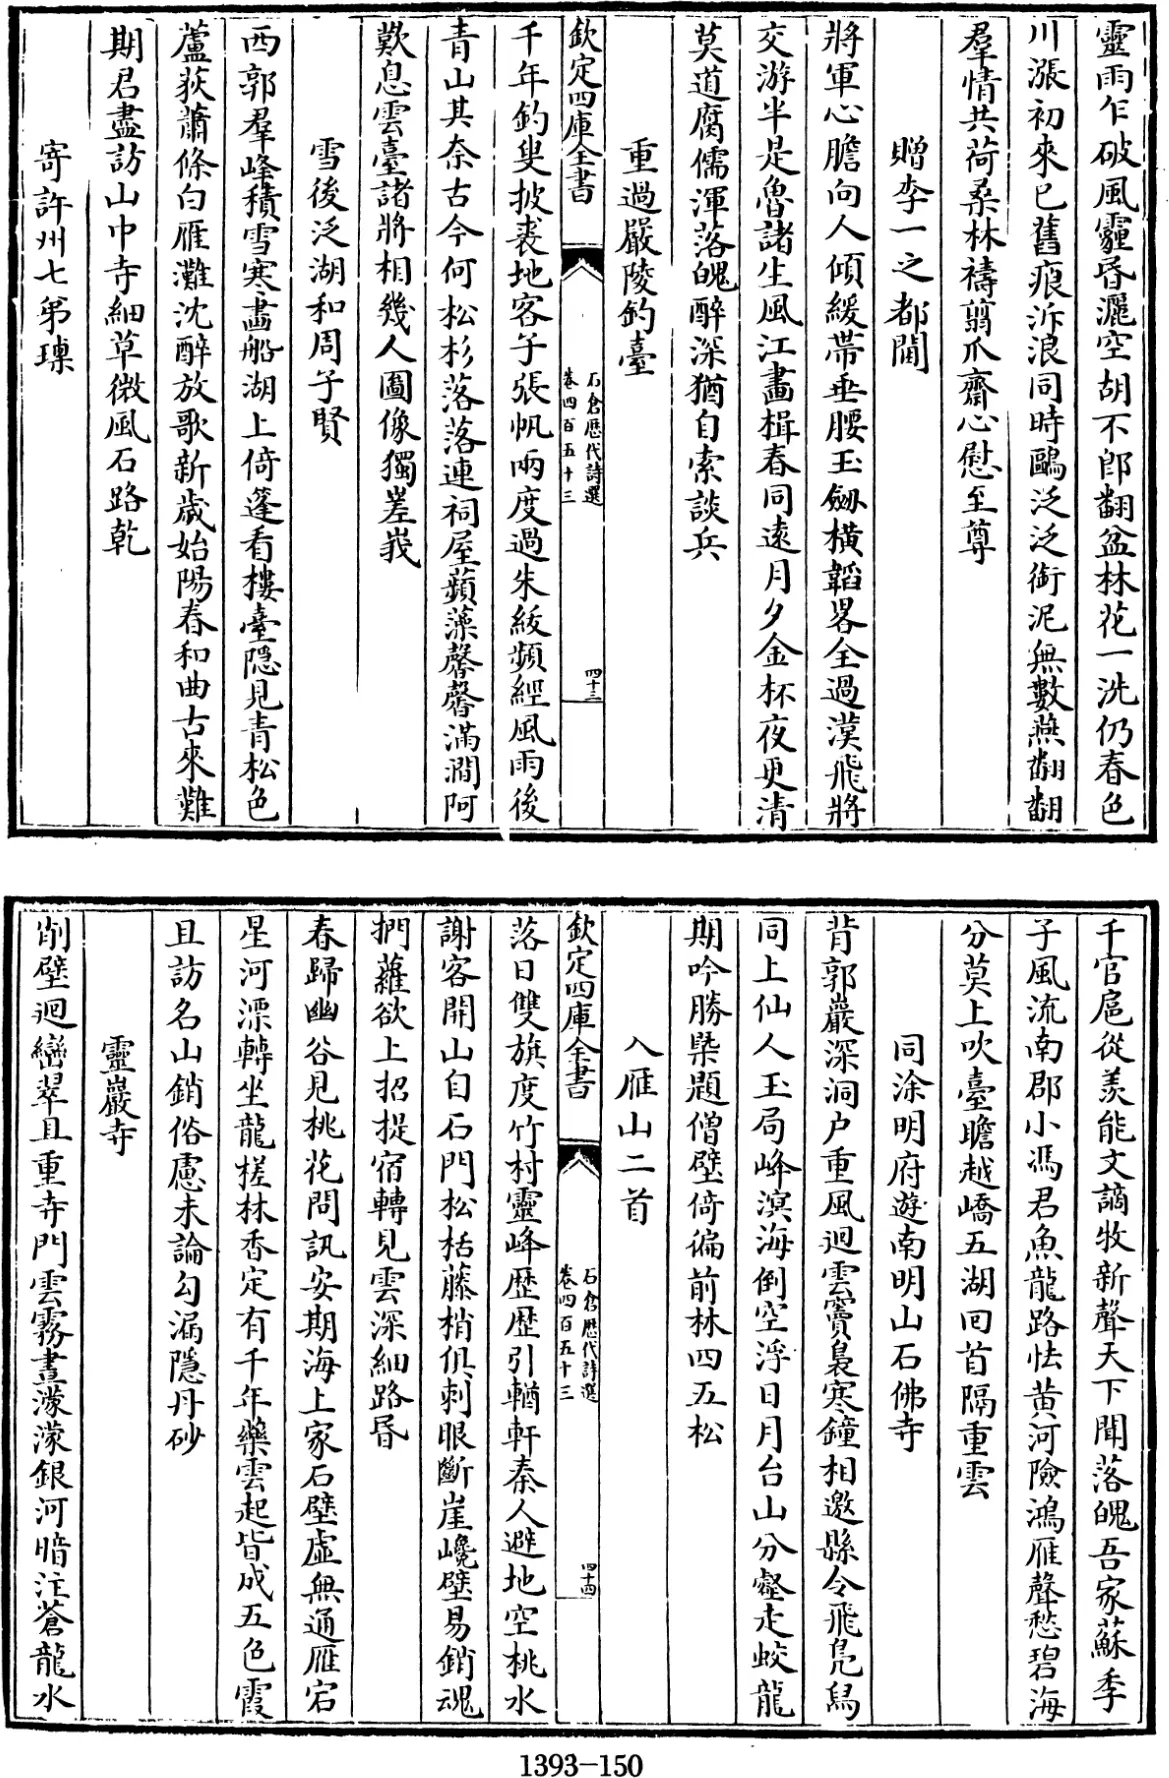 靈雨乍破風霾昏灑空胡不郎翻盆林花一洗仍春色
川漲初來已舊痕泝浪同時鷗泛泛銜泥無數燕翻翻
羣情共荷桑林禱翦爪齋心慰至尊
贈李一之都閫
將軍心膽向人傾緩帶垂腰玉劒橫韜畧全過漢飛將
交游半是魯諸生風江畫楫春同遠月夕金杯夜更清
莫道腐儒渾落魄醉深猶自索談兵
重過嚴陵釣臺
欽定四庫全書
石倉歷代詩選
卷四百五十三
四十三
千年釣叟披裘地客子張帆兩度過朱紱頻經風雨後
青山其奈古今何松杉落落連祠屋蘋藻馨馨滿澗阿
歎息雲臺諸將相幾人圖像獨差峩
雪後泛湖和周子賢
西郭羣峰積雪寒畵船湖上倚蓬看樓臺隠見青松色
蘆荻蕭條白雁灘沈醉放歌新歲始陽春和曲古來難
期君盡訪山中寺細草微風石路乾
寄許州七弟㻛
千官扈從羨能文謫牧新聲天下聞落魄吾家蘇季
子風流南郡小馮君魚龍路怯黃河險鴻雁聲愁碧海
分莫上吹臺瞻越嶠五湖回首隔重雲
同涂明府遊南明山石佛寺
背郭巖深洞户重風迴雲竇裊寒鐘相邀縣令飛鳧舄
同上仙人玉局峰溟海倒空浮日月台山分壑走蛟龍
期吟勝槩題僧壁倚徧前林四五松
入雁山二首
欽定四庫全書
石倉歷代詩選
卷四百五十三
四十四
落日雙旗度竹村靈峰歷歷引輶軒秦人避地空桃水
謝客開山自石門松栝藤梢俱刺眼斷崖巉壁易銷魂
捫蘿欲上招提宿轉見雲深細路昏
春歸幽谷見桃花問訊安期海上家石壁虛無通雁宕
星河漂轉坐龍槎林香定有千年藥雲起皆成五色霞
且訪名山銷俗慮未論勾漏隱丹砂
靈巖寺
削壁迴巒翠且重寺門雲霧晝濛濛銀河暗注蒼龍水
1393-150